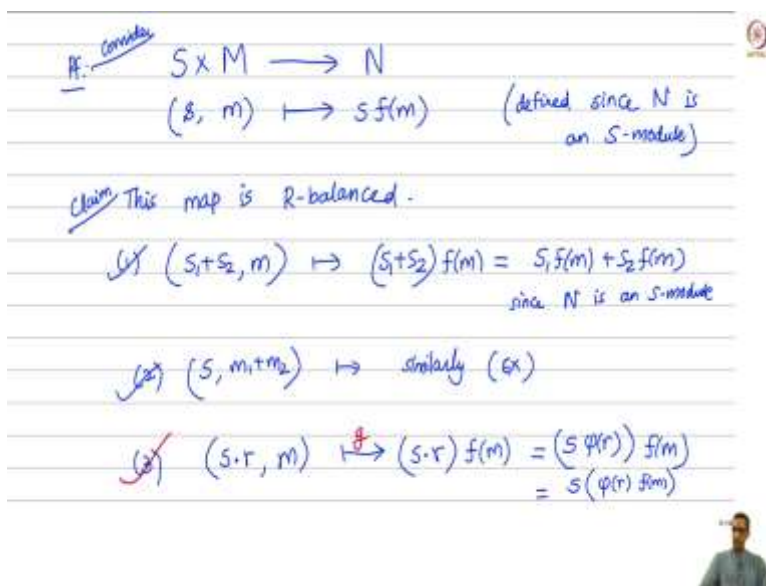 Pf:- Consider S × M → N
(s, m) ↦ s f(m) (defined since N is
an S-module)
Claim This map is R-balanced.
(1) (s₁+s₂, m) ↦ (s₁+s₂) f(m) = s₁ f(m) + s₂ f(m)
since N is an S-module
(2) (s, m₁+m₂) ↦ similarly (Ex)
(3) (s·r, m) g ↦ (s·r) f(m) = (s φ(r)) f(m)
= s(φ(r) f(m)